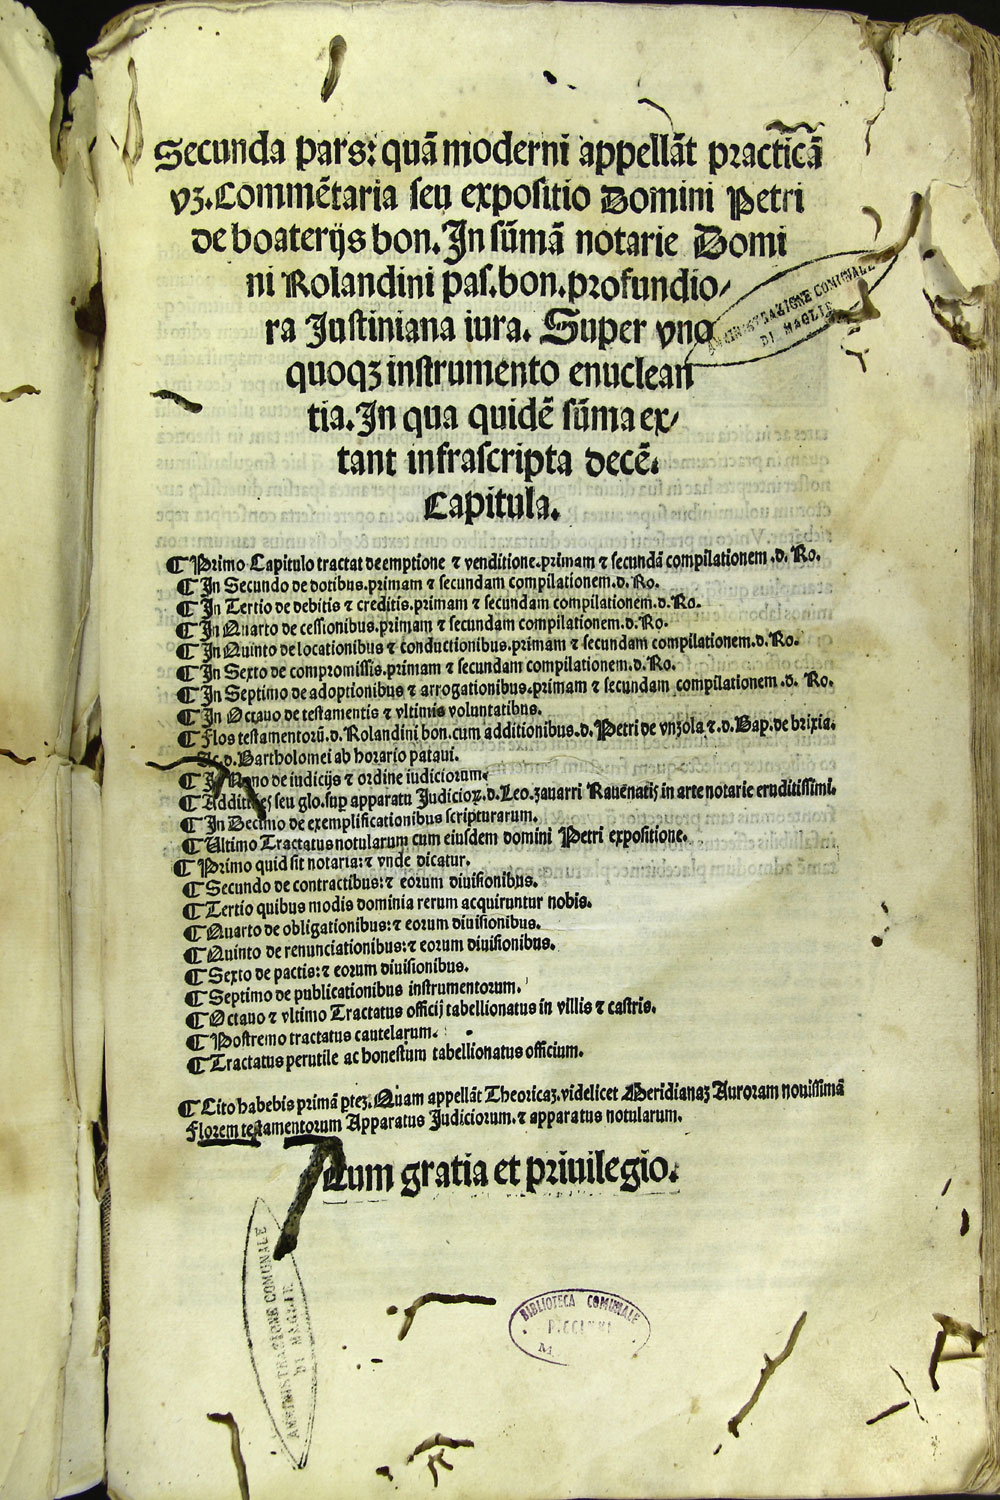 Secunda pars: quā moderni appellāt practicā
vz. Commētaria seu expositio Domini Petri
de boaterijs bon. In sūmā notarie Domi
ni Rolandini pas. bon. profundio/
ra Iustiniana iura. Super vno
quoqȝ instrumento enuclean
tia. In qua quidē sūma ex/
tant infrascripta decē.
Capitula.
¶ Primo Capitulo tractat de emptione ⁊ venditione. primam ⁊ secundā compilationem .d. Ro.
¶ In Secundo de dotibus. primam ⁊ secundam compilationem. d. Ro.
¶ In Tertio de debitis ⁊ creditis. primam ⁊ secundam compilationem. d. Ro.
¶ In Quarto de cessionibus. primam ⁊ secundam compilationem. d. Ro.
¶ In Quinto de locationibus ⁊ conductionibus. primam ⁊ secundam compilationem. d. Ro.
¶ In Sexto de compromissis. primam ⁊ secundam compilationem. d. Ro.
¶ In Septimo de adoptionibus ⁊ arrogationibus. primam ⁊ secundam compilationem .d. Ro.
¶ In Octauo de testamentis ⁊ vltimis voluntatibus.
¶ Flos testamentorū .d. Rolandini bon. cum additionibus .d. Petri de vnzola ⁊ .d. Bap. de brixia.
Ac .d. Bartholomei ab horario pataui.
¶ In Nono de iudicijs ⁊ ordine iudiciorum.
¶ seu glo. sup apparatu Judicioꝝ .d. Leo. zauarri Rauēnatis in arte notarie eruditissimi.
¶ In Decimo de exemplificationibus scripturarum.
¶ Ultimo Tractatus notularum cum eiusdem domini Petri expositione.
¶ Primo quid sit notaria: ⁊ vnde dicatur.
¶ Secundo de contractibus: ⁊ eorum diuisionibus.
¶ Tertio quibus modis dominia rerum acquiruntur nobis.
¶ Quarto de obligationibus: ⁊ eorum diuisionibus.
¶ Quinto de renunciationibus: ⁊ eorum diuisionibus.
¶ Sexto de pactis: ⁊ eorum diuisionibus.
¶ Septimo de publicationibus instrumentorum.
¶ Octauo ⁊ vltimo Tractatus officij tabellionatus in villis ⁊ castris.
¶ Postremo tractatus cautelarum.
¶ Tractatus perutile ac honestum tabellionatus officium.
¶ Cito habebis primā ꝑteȝ. Quam appellāt Theoricaȝ. videlicet Meridianaȝ Auroram nouissimā
Florem testamentorum Apparatus Judiciorum. ⁊ apparatus notularum.
Cum gratia et priuilegio.
AMMINISTRAZIONE COMUNALE
DI MAGLIE
AMMINISTRAZIONE COMUNALE
DI MAGLIE
BIBLIOTECA COMUNALE